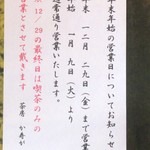 年末年始の営業日についてお知らせ
年末 一二月 二九日(金)まで営業
年始 一月 九日(火)より
通常通り営業いたします。
12/29の最終日は喫茶のみの
営業とさせて戴きます
茶房 か寿が